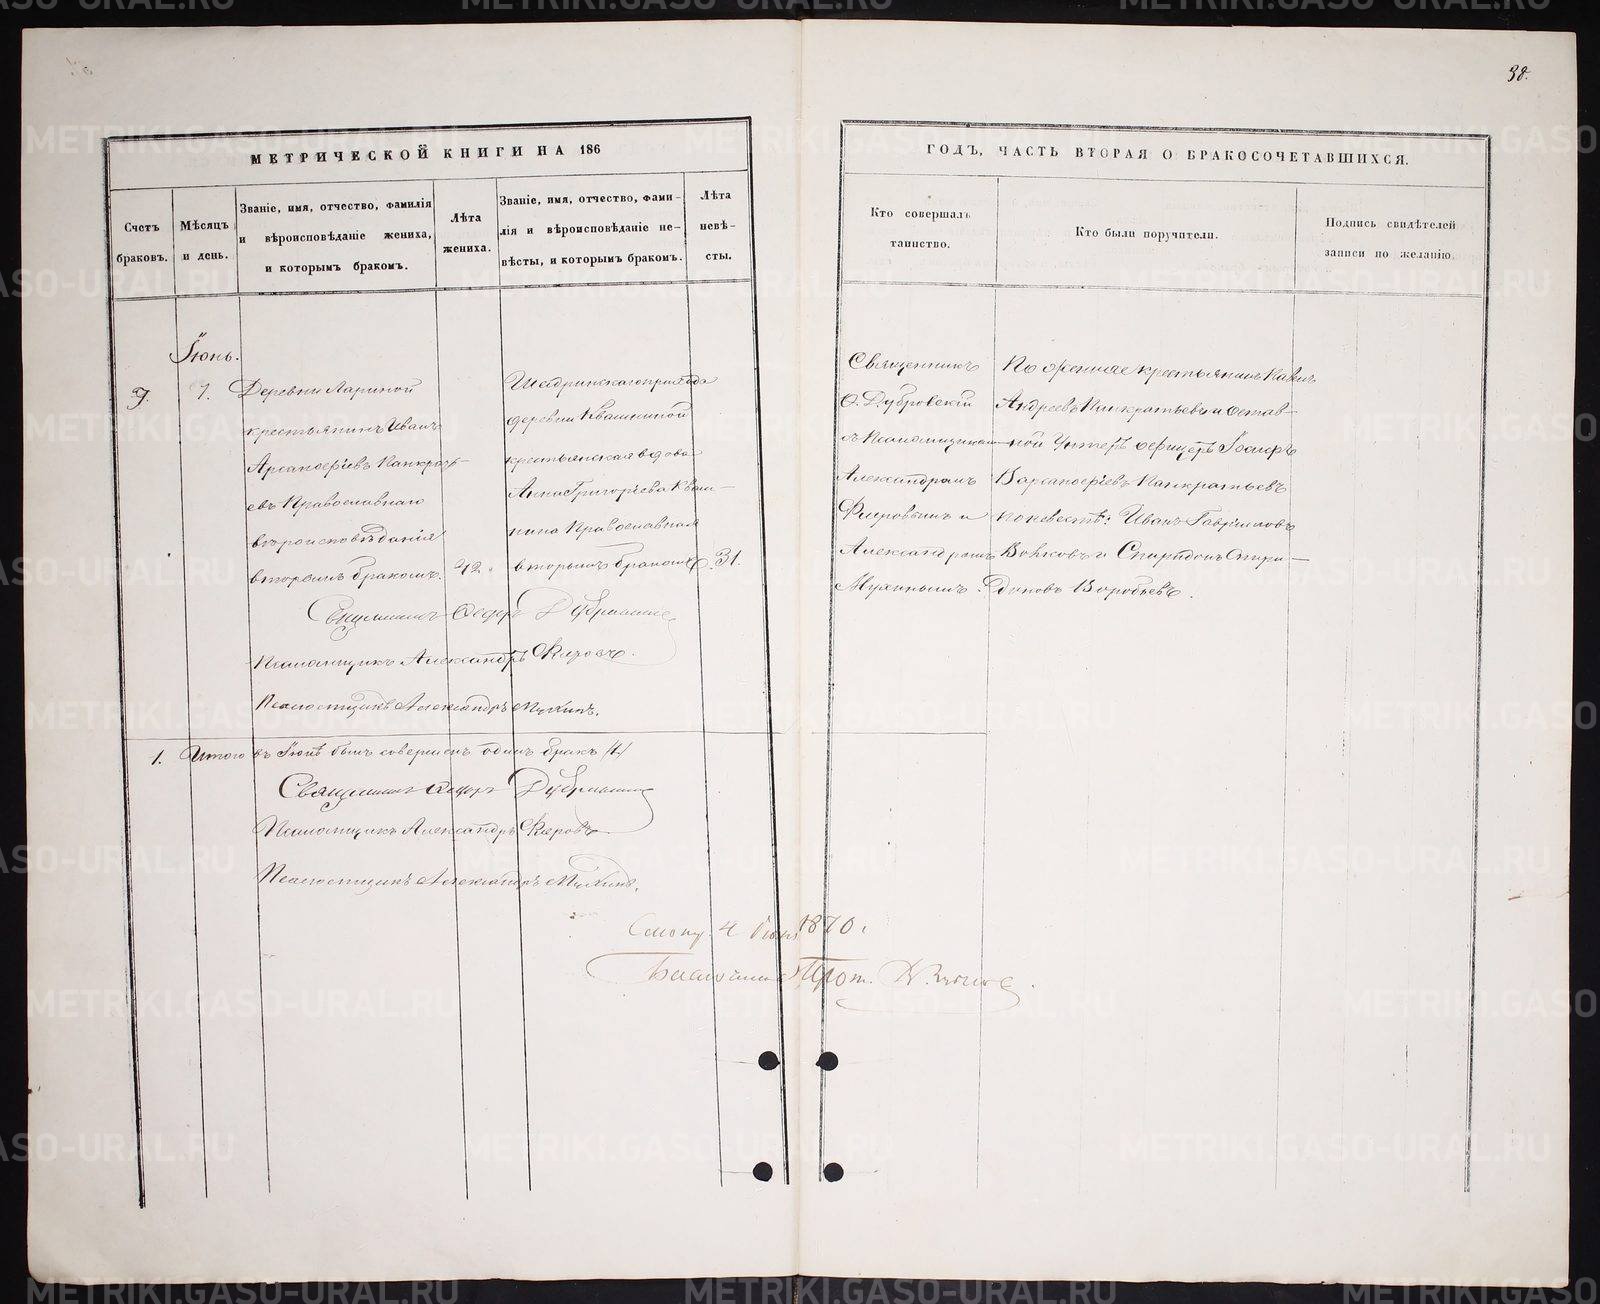 38.
МЕТРИЧЕСКОЙ КНИГИ НА 186
ГОДЪ, ЧАСТЬ ВТОРАЯ О БРАКОСОЧЕТАВШИХСЯ.
Счетъ
браковъ.
Мѣсяцъ
и день.
Званіе, имя, отчество, фамилія
и вѣроисповѣданіе жениха,
и которымъ бракомъ.
Лѣта
жениха.
Званіе, имя, отчество, фами-
лія и вѣроисповѣданіе не-
вѣсты, и которымъ бракомъ.
Лѣта
невѣ-
сты.
Кто совершалъ
таинство.
Кто были поручители.
Подпись свидѣтелей
записи по желанію.
Іюнь.
9.
7.
Деревни Лариной
крестьянинъ Иванъ
Панкрать-
евъ Православнаго
вѣроисповѣданія
вторымъ бракомъ.
42.
Шадринскаго прихода
деревни Квашниной
крестьянская вдова
Анна Григорьева Кваш-
нина Православная
вторымъ бракомъ
31.
Священникъ
Ѳ. Дубровскій
съ Псаломщикомъ
Александромъ
и
Александромъ
Мухинымъ.
По женихе крестьянинъ Павелъ
Андреевъ Панкратьевъ и Отстав-
ной Унтеръ офицеръ Іосифъ
Панкратьевъ
по невестѣ: Иванъ Гавриловъ
Волковъ и Спиридонъ Спири-
доновъ Воробьевъ.
Священникъ Ѳедоръ Дубровскій
Псаломщикъ Александръ
Псаломщикъ Александръ Мухинъ.
1. Итого въ Іюнѣ былъ совершенъ одинъ бракъ /1./
Священникъ Ѳедоръ Дубровскій
Псаломщикъ Александръ
Псаломщикъ Александръ Мухинъ.
4 1870 г.
Благочинный Прот.
METRIKI.GASO-URAL.RU